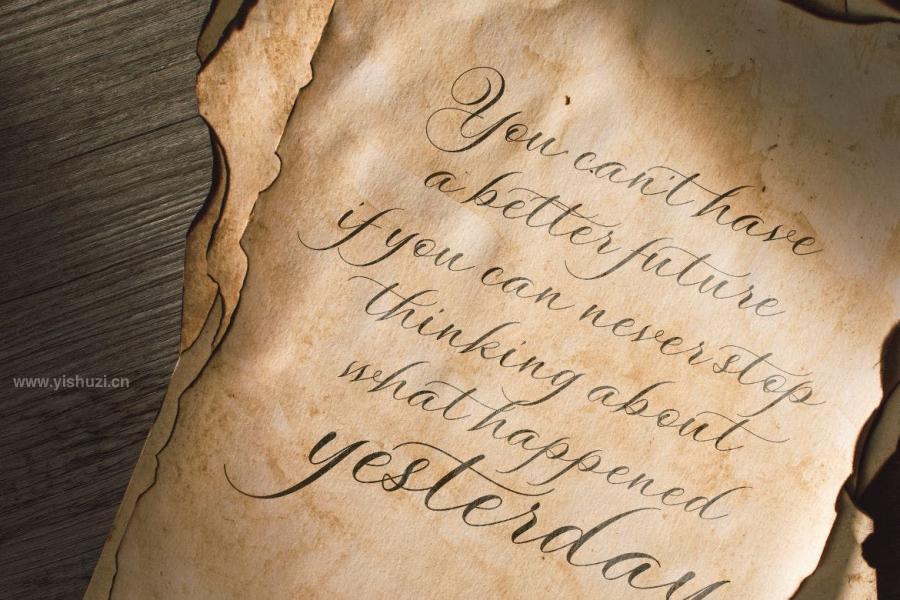 You can't have
a better future
if you can never stop
thinking about
what happened
yesterday
www.yishuzi.cn